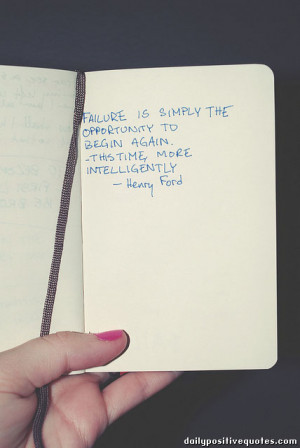 FAILURE IS SIMPLY THE
OPPORTUNITY TO
BEGIN AGAIN.
-THIS TIME, MORE
INTELLIGENTLY
- Henry Ford
dailypositivequotes.com